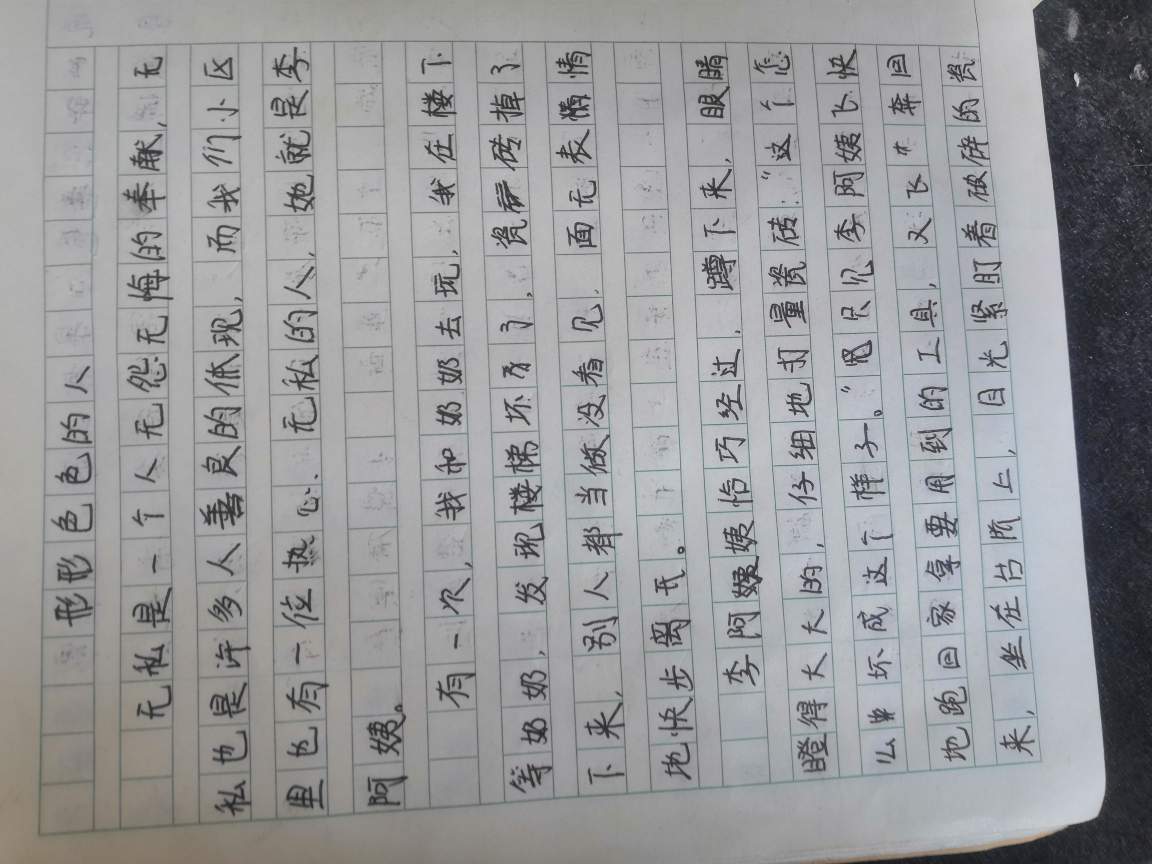 形形色色的人
无私是一个人无怨无悔的奉献,无
私也是许多人善良的体现,而我们小区
里也有一位热心、无私的人,她就是李
阿姨。
有一次,我和奶奶去玩,我在楼下
等奶奶,发现楼梯坏了,瓷砖掉了
下来,别人都当做没看见,面无表情
地快步离开。
李阿姨恰巧经过,蹲下来,眼睛
瞪得大大的,仔细地打量瓷砖:“这个怎
么坏成这个样子。”只见李阿姨飞快
地跑回家拿要用到的工具,又飞奔回
来,坐在台阶上,目光紧盯着破碎的瓷